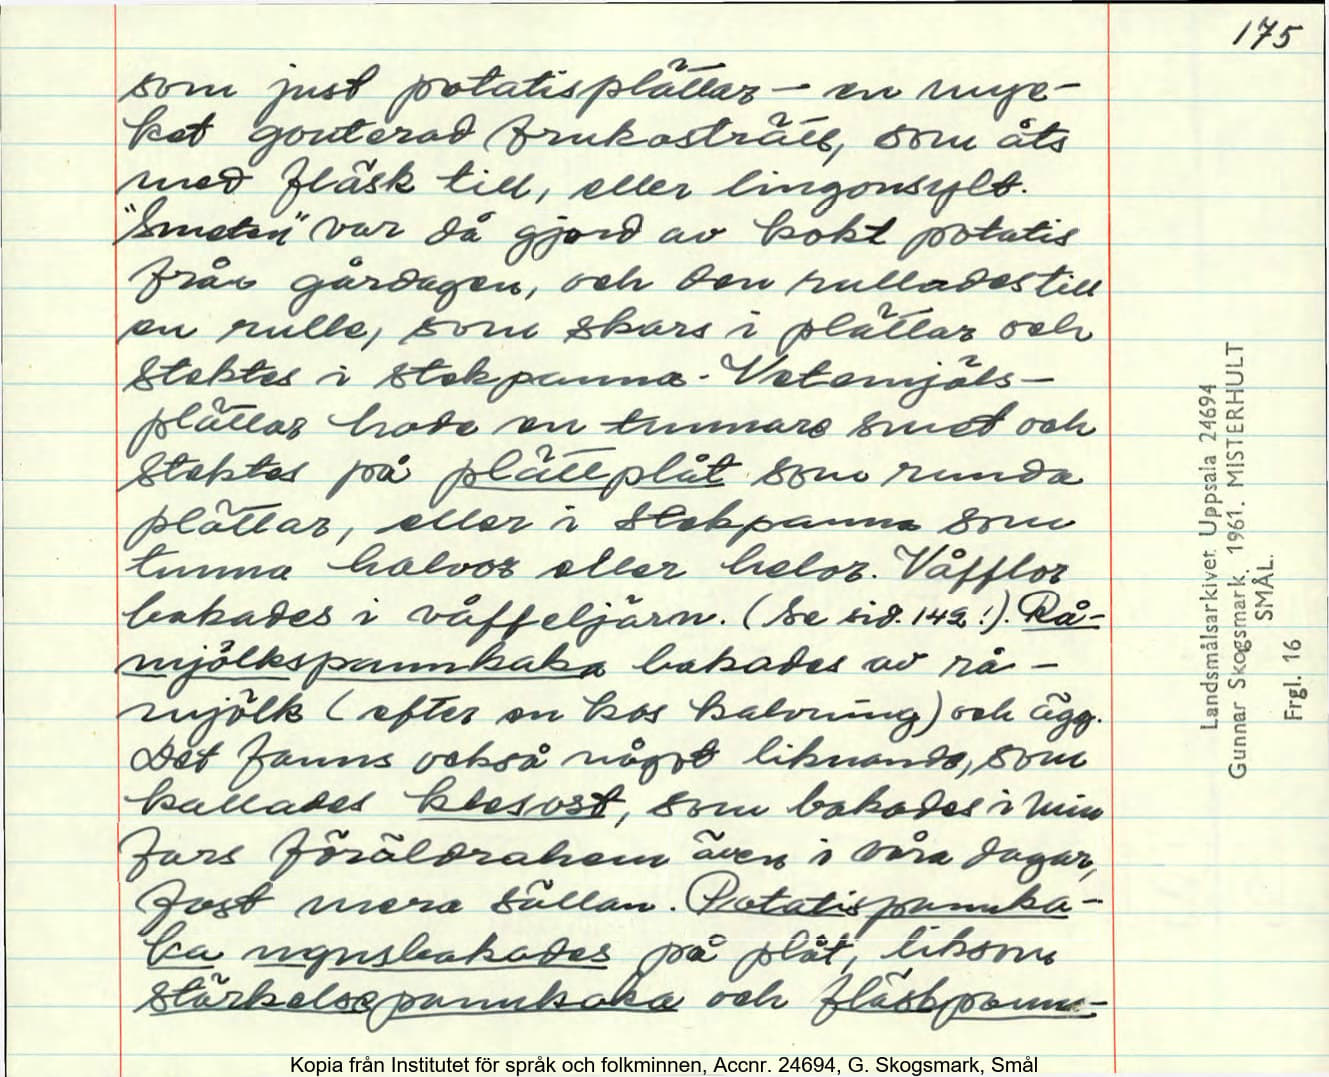 175
som just potatisplättar – en myc-
ket gouterad frukosträtt, som åts
med fläsk till, eller lingonsylt.
"Smeten" var då gjord av kokt potatis
från gårdagen, och den rullades till
en rulle, som skars i plättar och
stektes i stekpanna. Vetemjöls-
plättar hade en tunnare smet och
stektes på plättplåt som runda
plättar, eller i stekpanna som
tunna halvor eller helor. Våfflor
bakades i våffeljärn. (Se sid. 142!). Rå-
mjölkspannkaka bakades av rå-
mjölk (efter en kos kalvning) och ägg.
Det fanns också något liknande, som
kallades klesost, som bakades i min
fars föräldrahem även i våra dagar,
fast mera sällan. Potatispannka-
ka ugnsbakades på plåt, liksom
stärkelsepannkaka och fläskpann-
Landsmålsarkivet Uppsala 24694
Gunnar Skogsmark. 1961. MISTERHULT
SMÅL.
Frgl. 16
Kopia från Institutet för språk och folkminnen, Accnr. 24694, G. Skogsmark, Smål